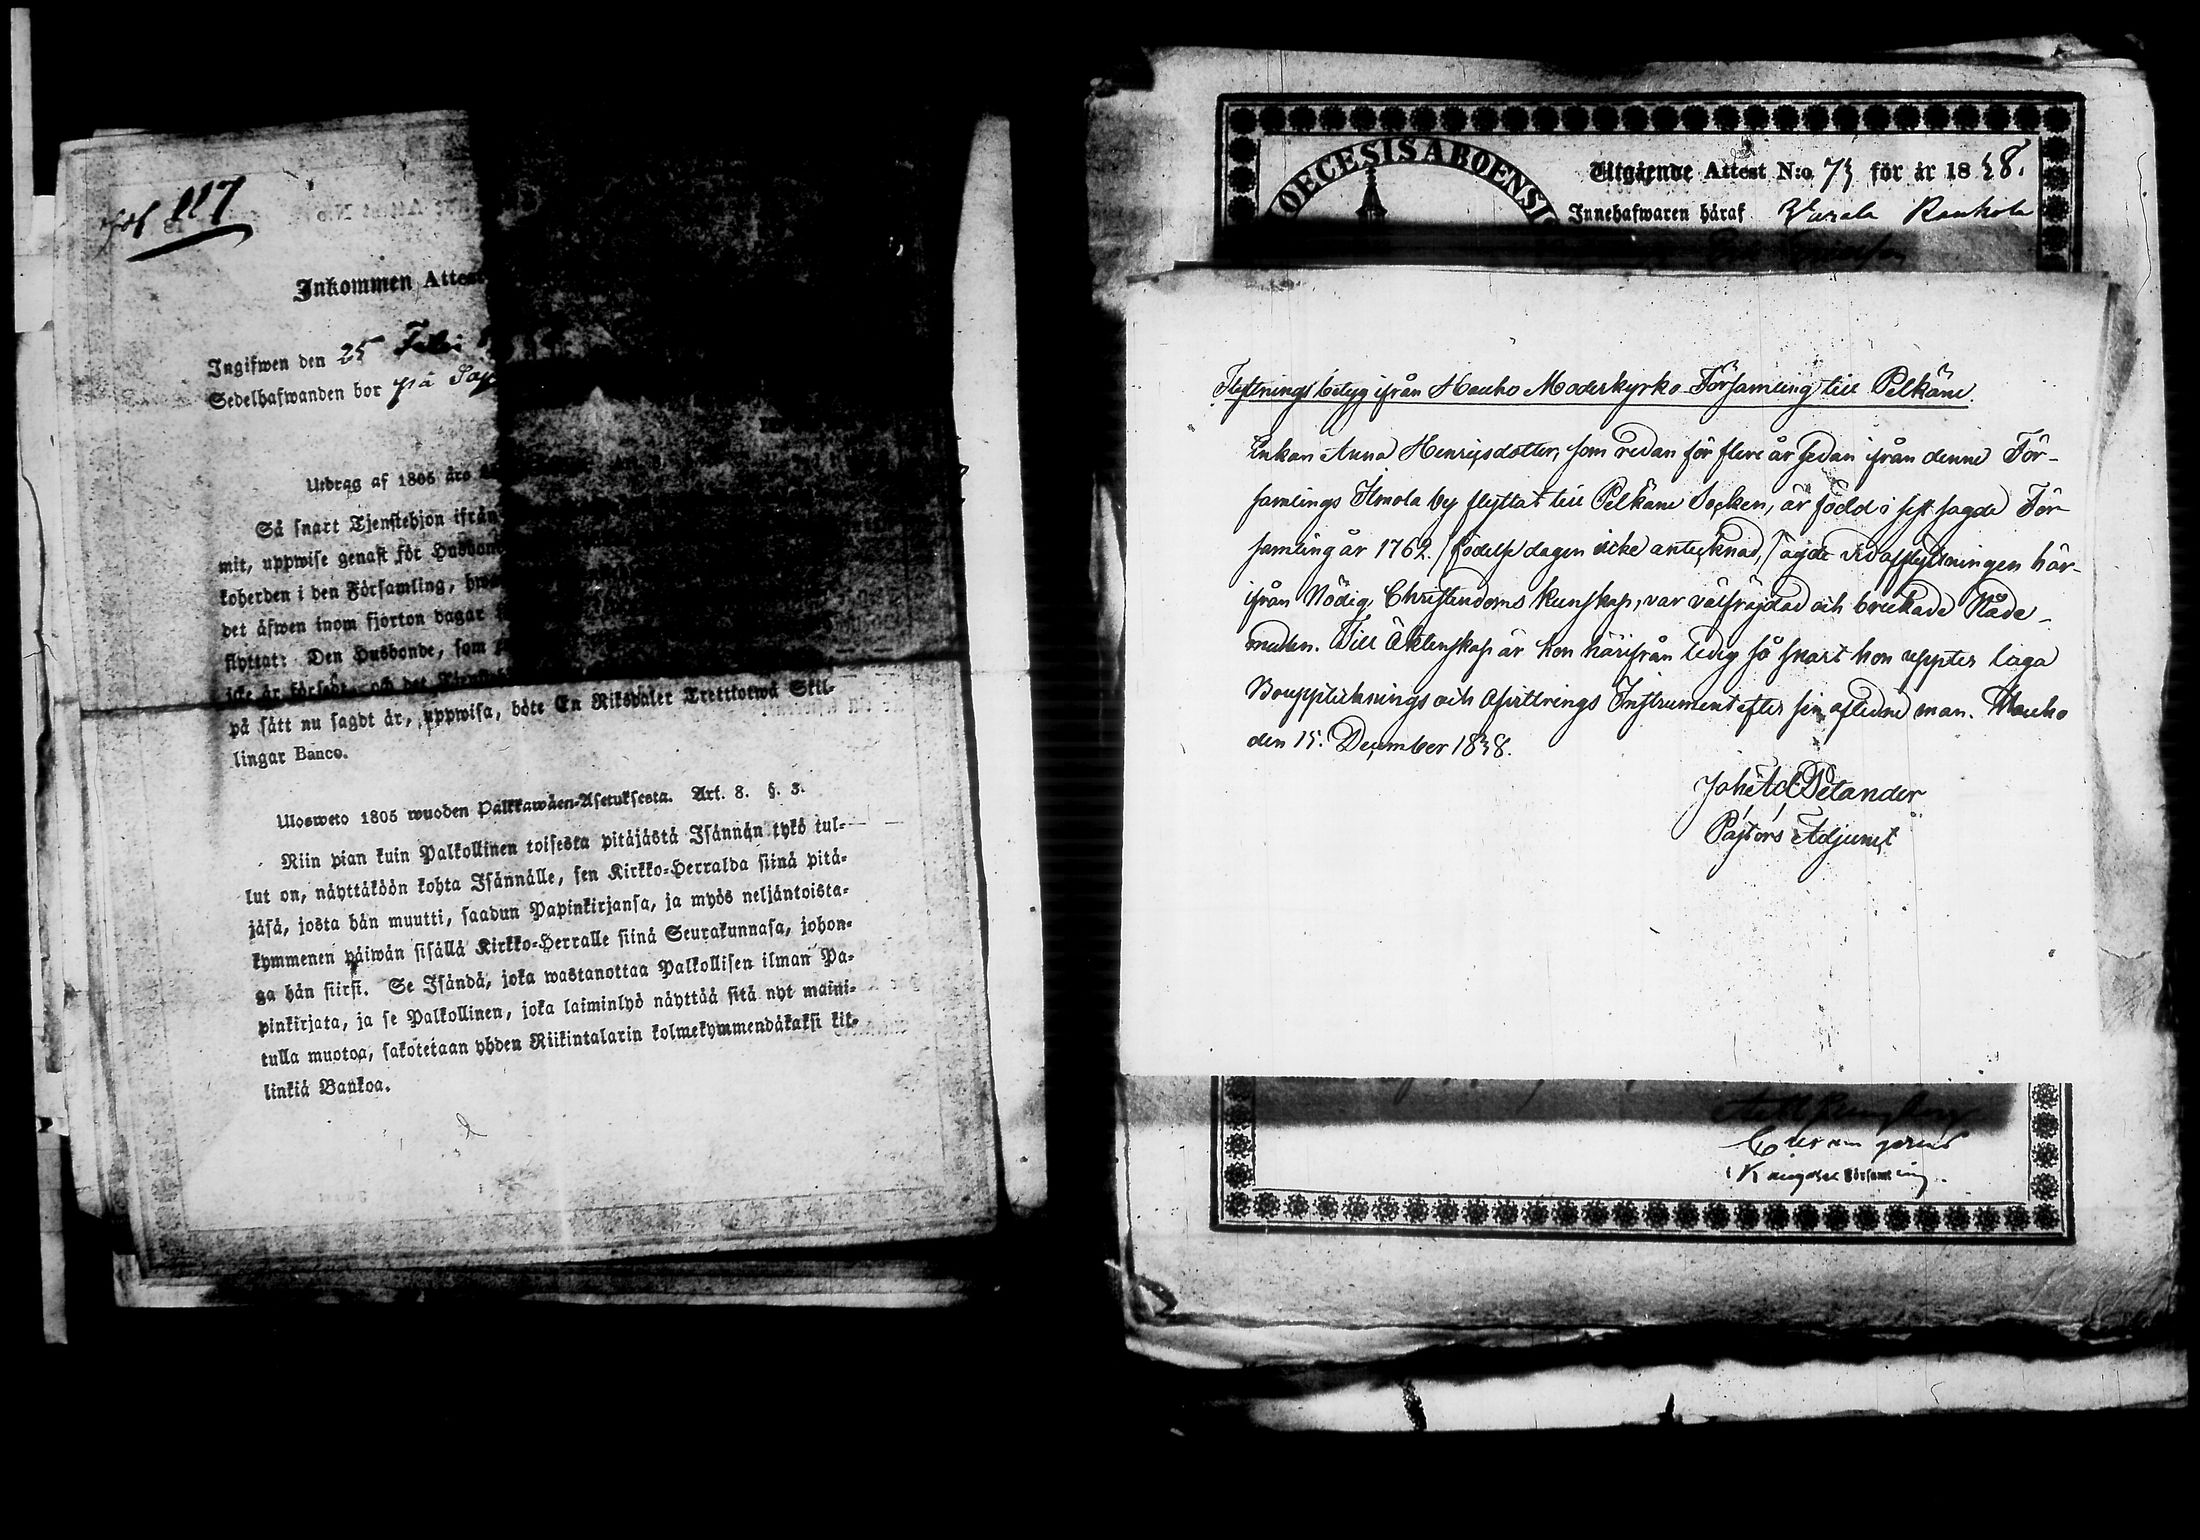 117
Inkommen Attest
Ingifwen den 25 Febr
Sedelhafwanden bor på
Utdrag af 1805 års
Så snart Tjenstehjon ifrån
mit, uppwise genast för Husbond
koherden i den Församling,
det äfwen inom fjorton dagar
flyttat: Den Husbonde, som
icke är försedt, och det
på sätt nu sagdt är, uppwisa, böte En Riksdaler Trettiotwå Skil-
lingar Banco.
Ulosweto 1805 wuoden Palkkawäen-Asetuksesta. Art. 8. §. 3.
Niin pian kuin Palkollinen toisesta pitäjästä Isännän tykö tul-
lut on, näyttäköön kohta Isännälle, sen Kirkko-Herralda siinä pitä-
jäsä, josta hän muutti, saadun Papinkirjansa, ja myös neljäntoista-
kymmenen päiwän sisällä Kirkko-Herralle siinä Seurakunnasa, johon-
ga hän siirsi. Se Isändä, joka wastanottaa Palkollisen ilman Pa-
pinkirjata, ja se Palkollinen, joka laiminlyö näyttää sitä nyt maini-
tulla muotoa, sakotetaan yhden Riikintalarin kolmekymmendäkaksi kil-
linkiä Bankoa.
OECESIS ABOENSI
Utgående Attest N:o 73 för år 1838.
Innehafwaren häraf
Flyttnings betyg ifrån Hauho Moderkyrko Församling till Pelkäne.
Enkan Anna Henricsdotter, som redan för flere år sedan ifrån denne För-
samlings Ilmola by flyttat till Pelkäne Socken, är född i sist sagde För-
samling år 1762. /födelse dagen icke antecknad,/ ägde vid afflyttningen här-
ifrån Nödig Christendoms kunskap, var välfräjdad och brukade Nåde-
medlen. Till Äktenskap är hon härifrån ledig så snart hon uppter laga
Bouppteknings och Afvittrings Instrument efter sin aflidne man. Hauho
den 15. December 1838.
Joh: Ad: Petander
Pastors Adjunct
församling.